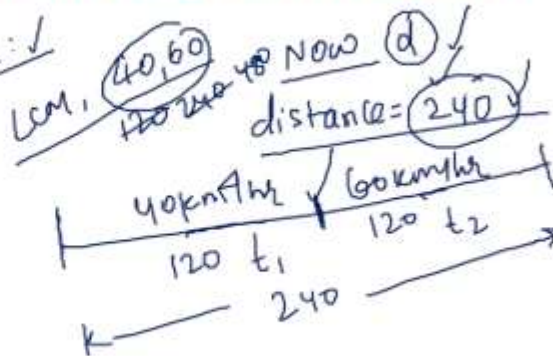 : ✓
LCM, 40,60 Now d ✓
120 240 40 distance = 240 ✓
40km/hr 60km/hr
120 t₁ 120 t₂
240